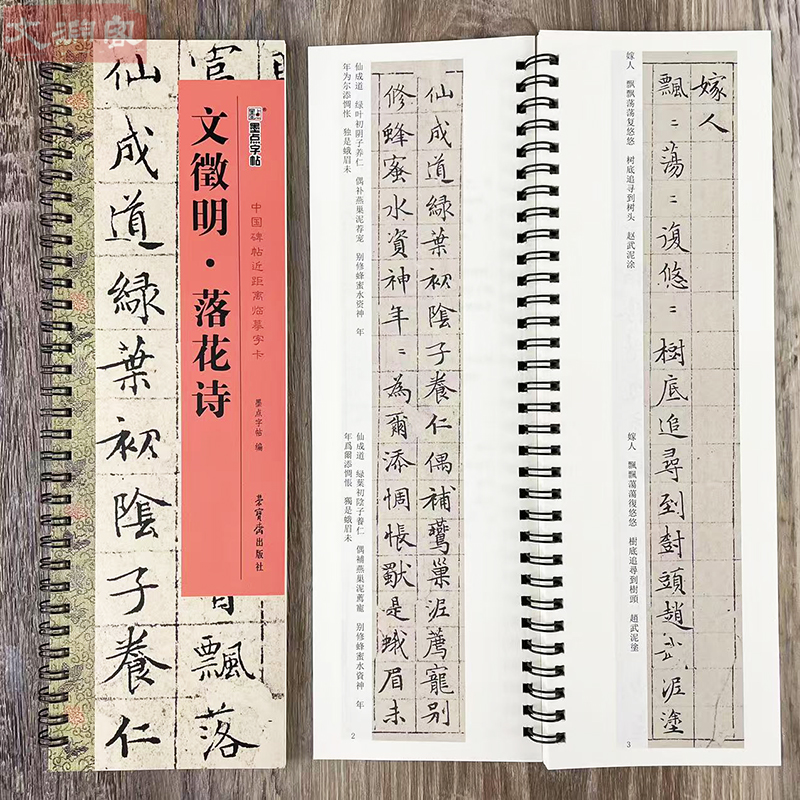 仙成道綠葉初陰子養仁
飄落
墨点字帖
文徵明·落花诗
中国碑帖近距离临摹字卡
墨点字帖 编
荣宝斋出版社
仙成道綠葉初陰子養仁偶補鷰巢泥薦寵别
修蜂蜜水資神年〻為爾添惆悵獨是蛾眉未
仙成道 绿叶初阴子养仁 偶补燕巢泥荐宠 别修蜂蜜水资神 年
年为尔添惆怅 独是蛾眉未
仙成道 緑葉初陰子養仁 偶補燕巢泥薦寵 别修蜂蜜水資神 年
年爲爾添惆悵 獨是蛾眉未
2
嫁人
飄〻蕩〻復悠〻樹底追尋到樹頭趙武泥塗
嫁人 飘飘荡荡复悠悠 树底追寻到树头 赵武泥涂
嫁人 飄飄蕩蕩復悠悠 樹底追尋到樹頭 趙武泥塗
3